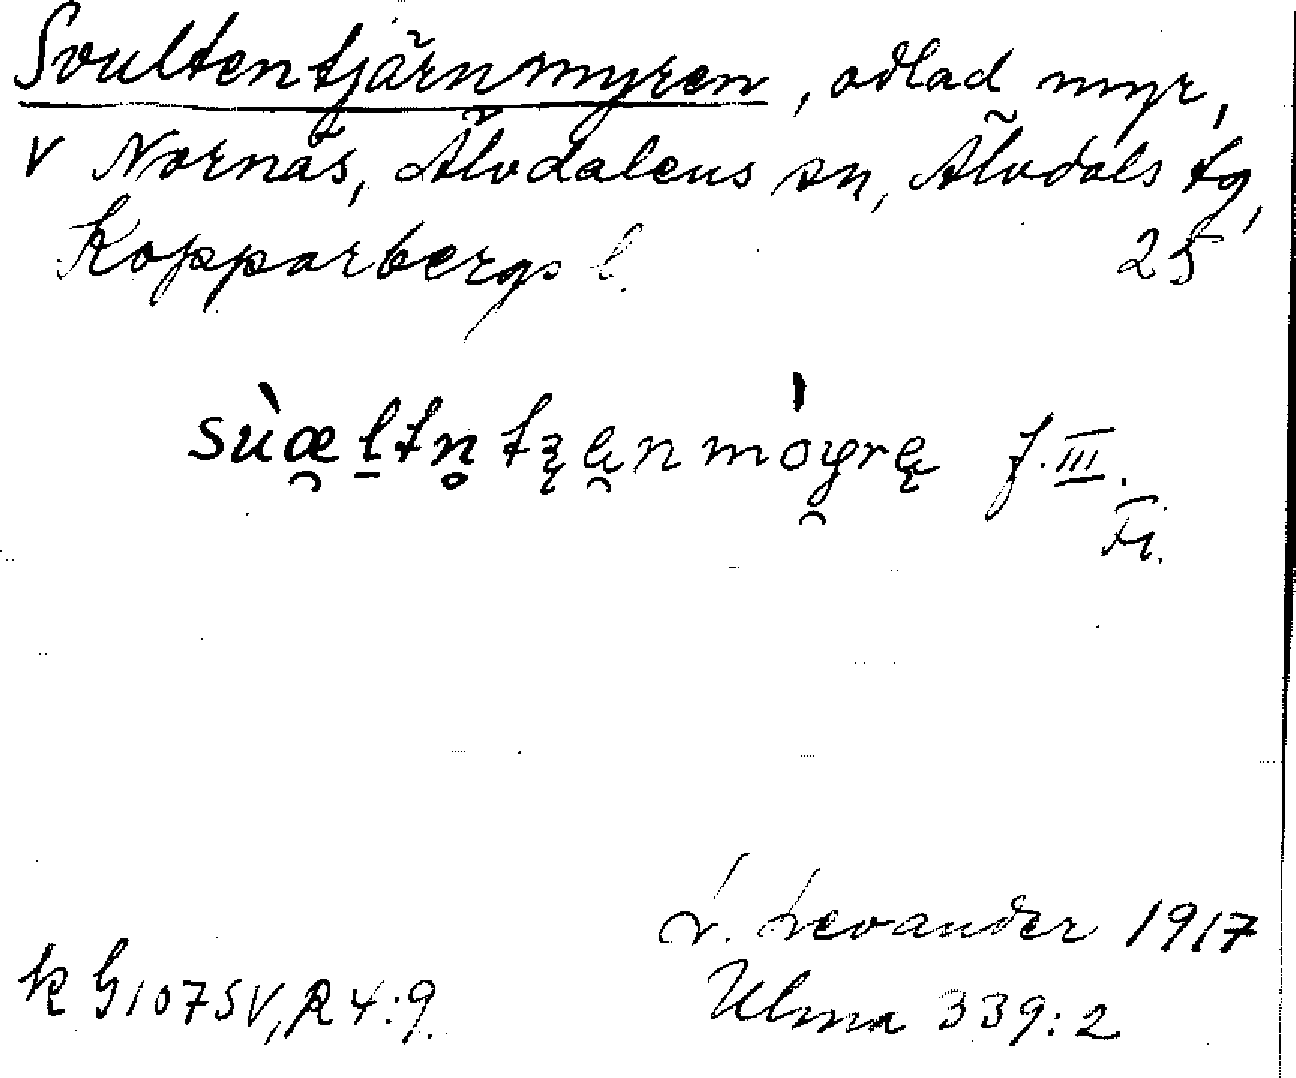 Svultentjärnmyren, odlad myr,
V Nornäs, Älvdalens sn, Älvdals tg,
Kopparbergs l. 25
sùæ̯l̠tn̥tʒ̨æ̯nmòy̯rę f. III.
Fi.
L. Levander 1917
k G1075V, R4:9. Ulma 339:2